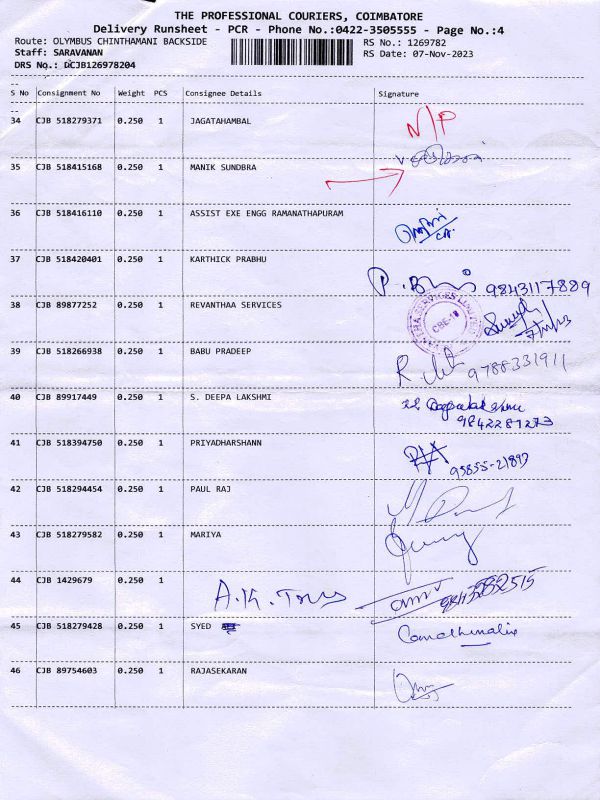 THE PROFESSIONAL COURIERS, COIMBATORE
Delivery Runsheet - PCR - Phone No.:0422-3505555 - Page No.:4
Route: OLYMBUS CHINTHAMANI BACKSIDE RS No.: 1269782
Staff: SARAVANAN RS Date: 07-Nov-2023
DRS No.: DCJB126978204
S No Consignment No Weight PCS Consignee Details Signature
34 CJB 518279371 0.250 1 JAGATAHAMBAL N/P
35 CJB 518415168 0.250 1 MANIK SUNDBRA
36 CJB 518416110 0.250 1 ASSIST EXE ENGG RAMANATHAPURAM
37 CJB 518420401 0.250 1 KARTHICK PRABHU
9843117889
38 CJB 89877252 0.250 1 REVANTHAA SERVICES
SERVICES LIMITED
CBE-18
39 CJB 518266938 0.250 1 BABU PRADEEP
9788331911
40 CJB 89917449 0.250 1 S. DEEPA LAKSHMI
9842287273
41 CJB 518394750 0.250 1 PRIYADHARSHANN
95855-21897
42 CJB 518294454 0.250 1 PAUL RAJ
43 CJB 518279582 0.250 1 MARIYA
44 CJB 1429679 0.250 1
A.K. Toys
45 CJB 518279428 0.250 1 SYED
46 CJB 89754603 0.250 1 RAJASEKARAN